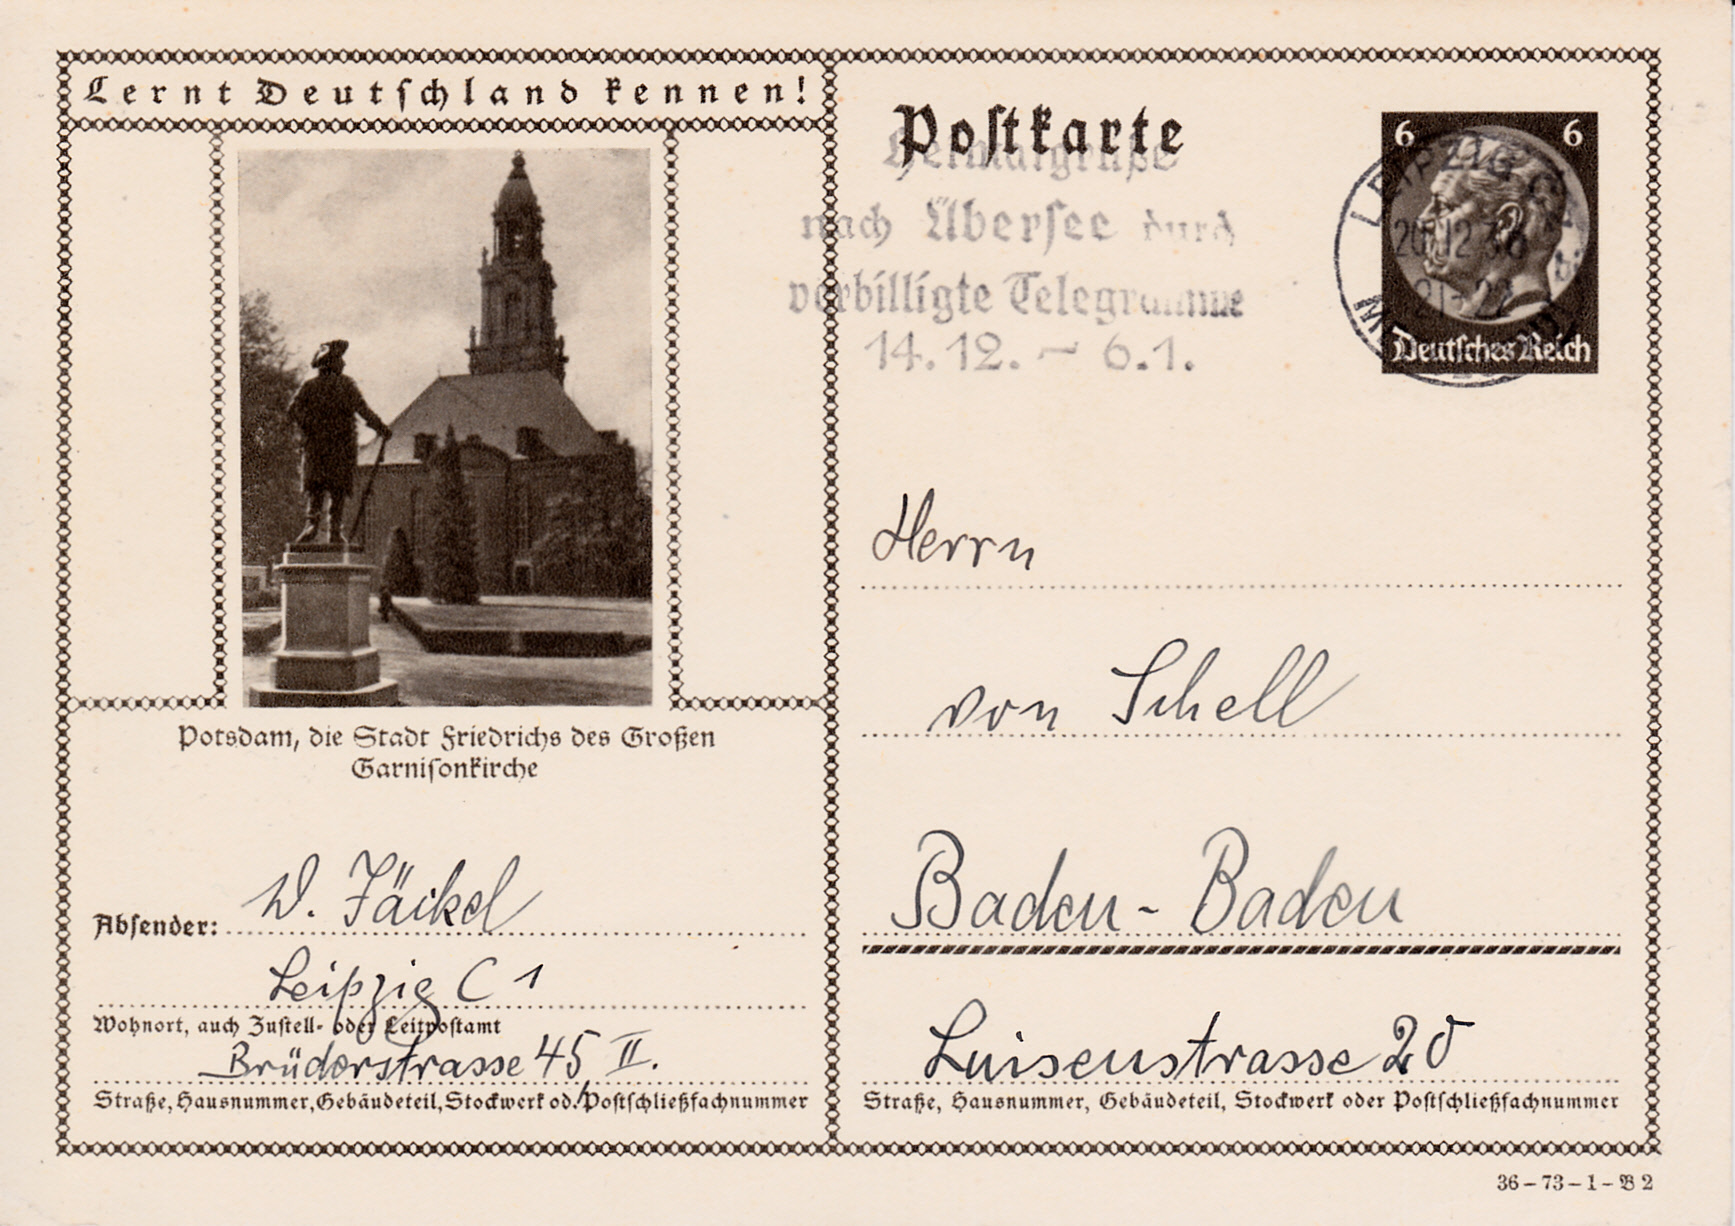 Lernt Deutschland kennen!
Potsdam, die Stadt Friedrichs des Großen
Garnisonkirche
Absender: W. Jäckel
Leipzig C 1
Wohnort, auch Zustell- oder Leitpostamt
Brüderstrasse 45 II.
Straße, Hausnummer, Gebäudeteil, Stockwerk od. Postschließfachnummer
Postkarte
Heimatgrüße
nach Übersee durch
verbilligte Telegramme
14.12. – 6.1.
6 6
LEIPZIG
Deutsches Reich
Herrn
von Schell
Baden-Baden
Luisenstrasse 20
Straße, Hausnummer, Gebäudeteil, Stockwerk oder Postschließfachnummer
36–73–1–B 2